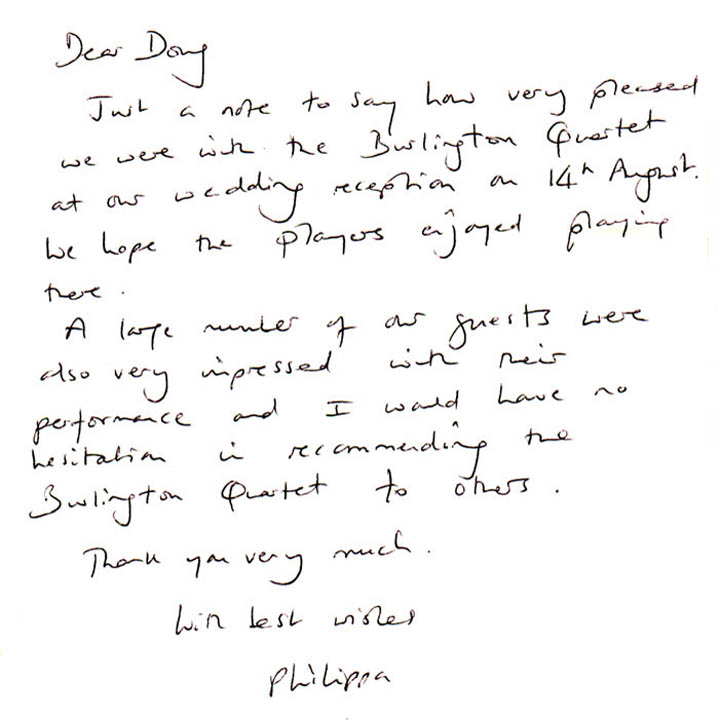 Dear Doug
Just a note to say how very pleased
we were with the Burlington Quartet
at our wedding reception on 14th August.
We hope the players enjoyed playing
there.
A large number of our guests were
also very impressed with their
performance and I would have no
hesitation in recommending the
Burlington Quartet to others.
Thank you very much.
With best wishes
Philippa